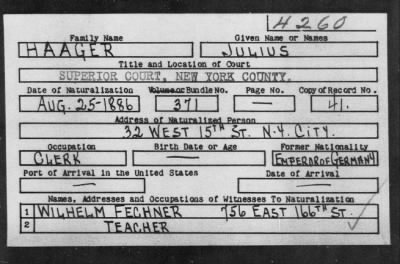 4260
Family Name Given Name or Names
HAAGER JULIUS
Title and Location of Court
SUPERIOR COURT, NEW YORK COUNTY.
Date of Naturalization Volume or Bundle No. Page No. Copy of Record No.
AUG. 25-1886 371 — 41.
Address of Naturalized Person
32 WEST 15TH ST. N.Y. CITY.
Occupation Birth Date or Age Former Nationality
CLERK — EMPEROR OF GERMANY
Port of Arrival in the United States Date of Arrival
— —
Names, Addresses and Occupations of Witnesses To Naturalization
1 WILHELM FECHNER 756 EAST 166TH ST.
2 TEACHER